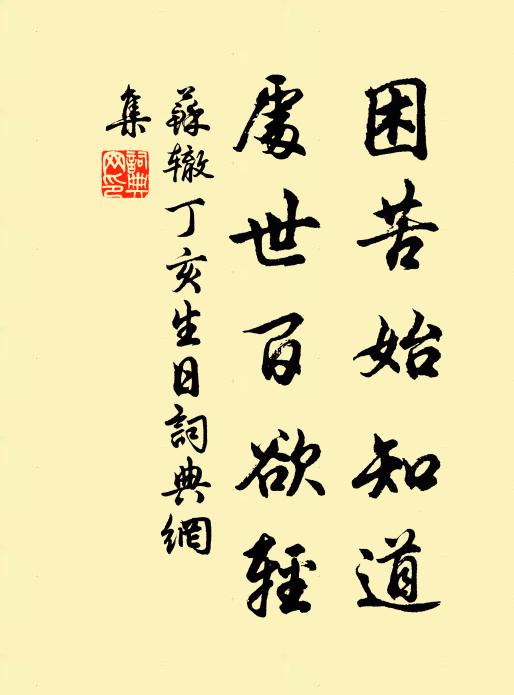 困苦始知道
處世百欲輕
蘇辙丁亥生日詞典網
集
詞典網印